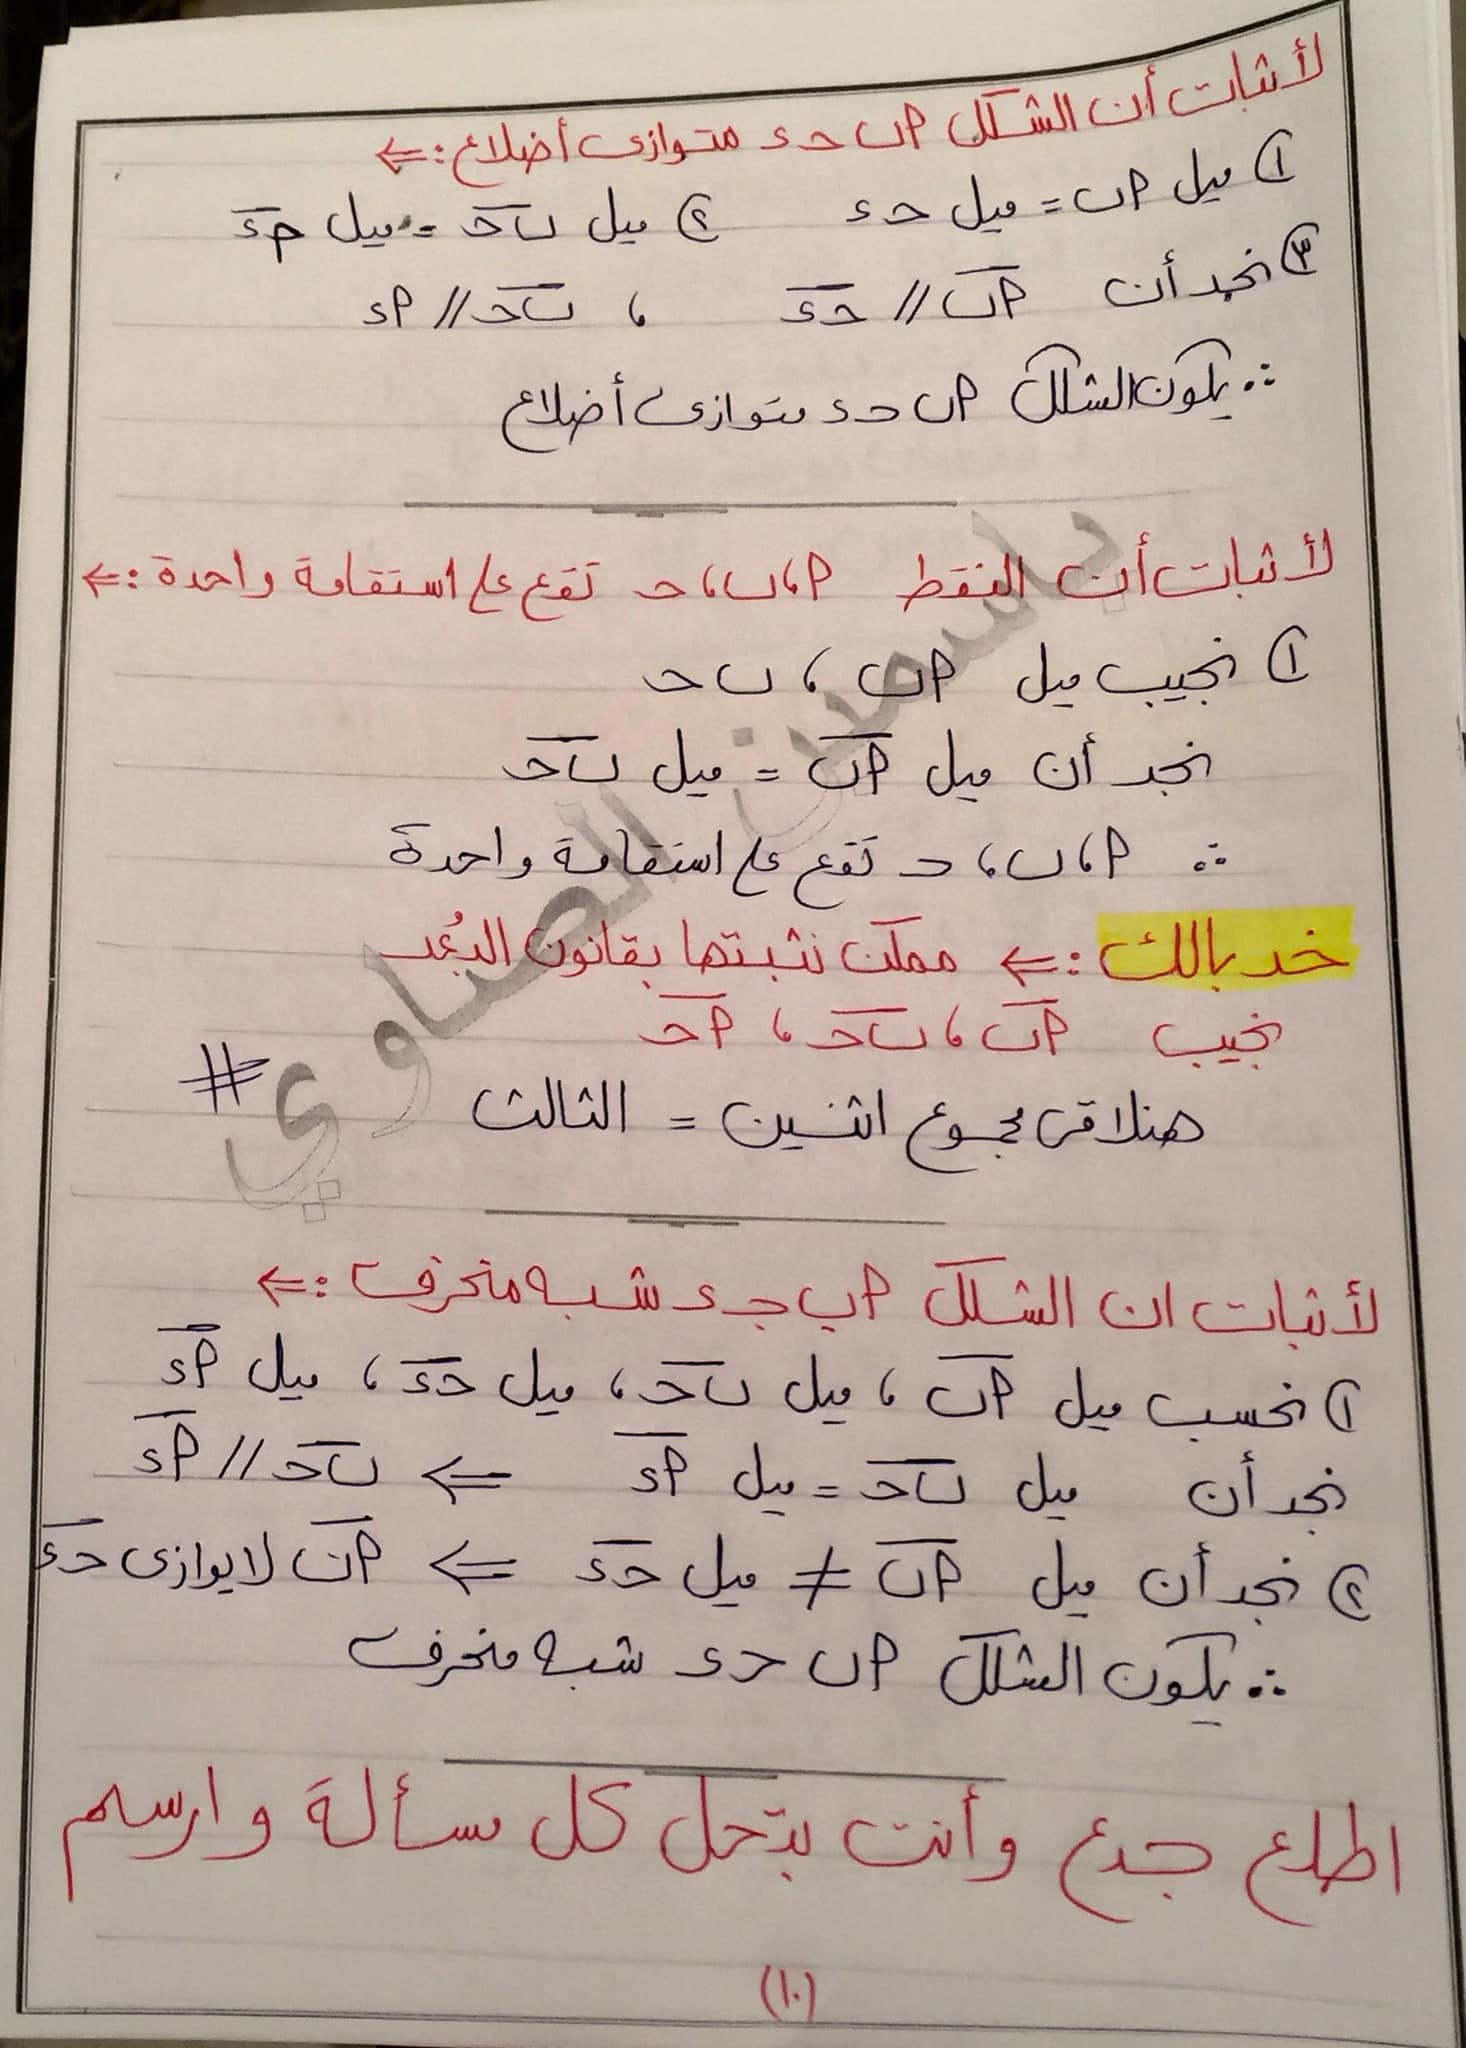 لأثبات أن الشكل أ ب ح ء متوازى أضلاع :⇐
① ميل أ ب = ميل ح ء ② ميل ب ح = ميل أ ء
③ نجد أن أ ب // ح ء ، ب ح // أ ء
∴ يكون الشكل أ ب ح ء متوازى أضلاع
لأثبات أن النقط أ ، ب ، ح تقع على استقامة واحدة :⇐
① نجيب ميل أ ب ، ب ح
نجد أن ميل أ ب = ميل ب ح
∴ أ ، ب ، ح تقع على استقامة واحدة
خد بالك :⇐ ممكن نثبتها بقانون البُعد
نجيب أ ب ، ب ح ، أ ح
هنلاقى مجموع اتنين = الثالث #
لأثبات ان الشكل أ ب ج ء شبه منحرف :⇐
① نحسب ميل أ ب ، ميل ب ح ، ميل ح ء ، ميل أ ء
نجد أن ميل ب ح = ميل أ ء ⇐ ب ح // أ ء
② نجد أن ميل أ ب ≠ ميل ح ء ⇐ أ ب لا يوازى ح ء
∴ يكون الشكل أ ب ح ء شبه منحرف
اطلع جدع وأنت بتحل كل مسألة وارسم
(١٠)
ياسمين الصاوي